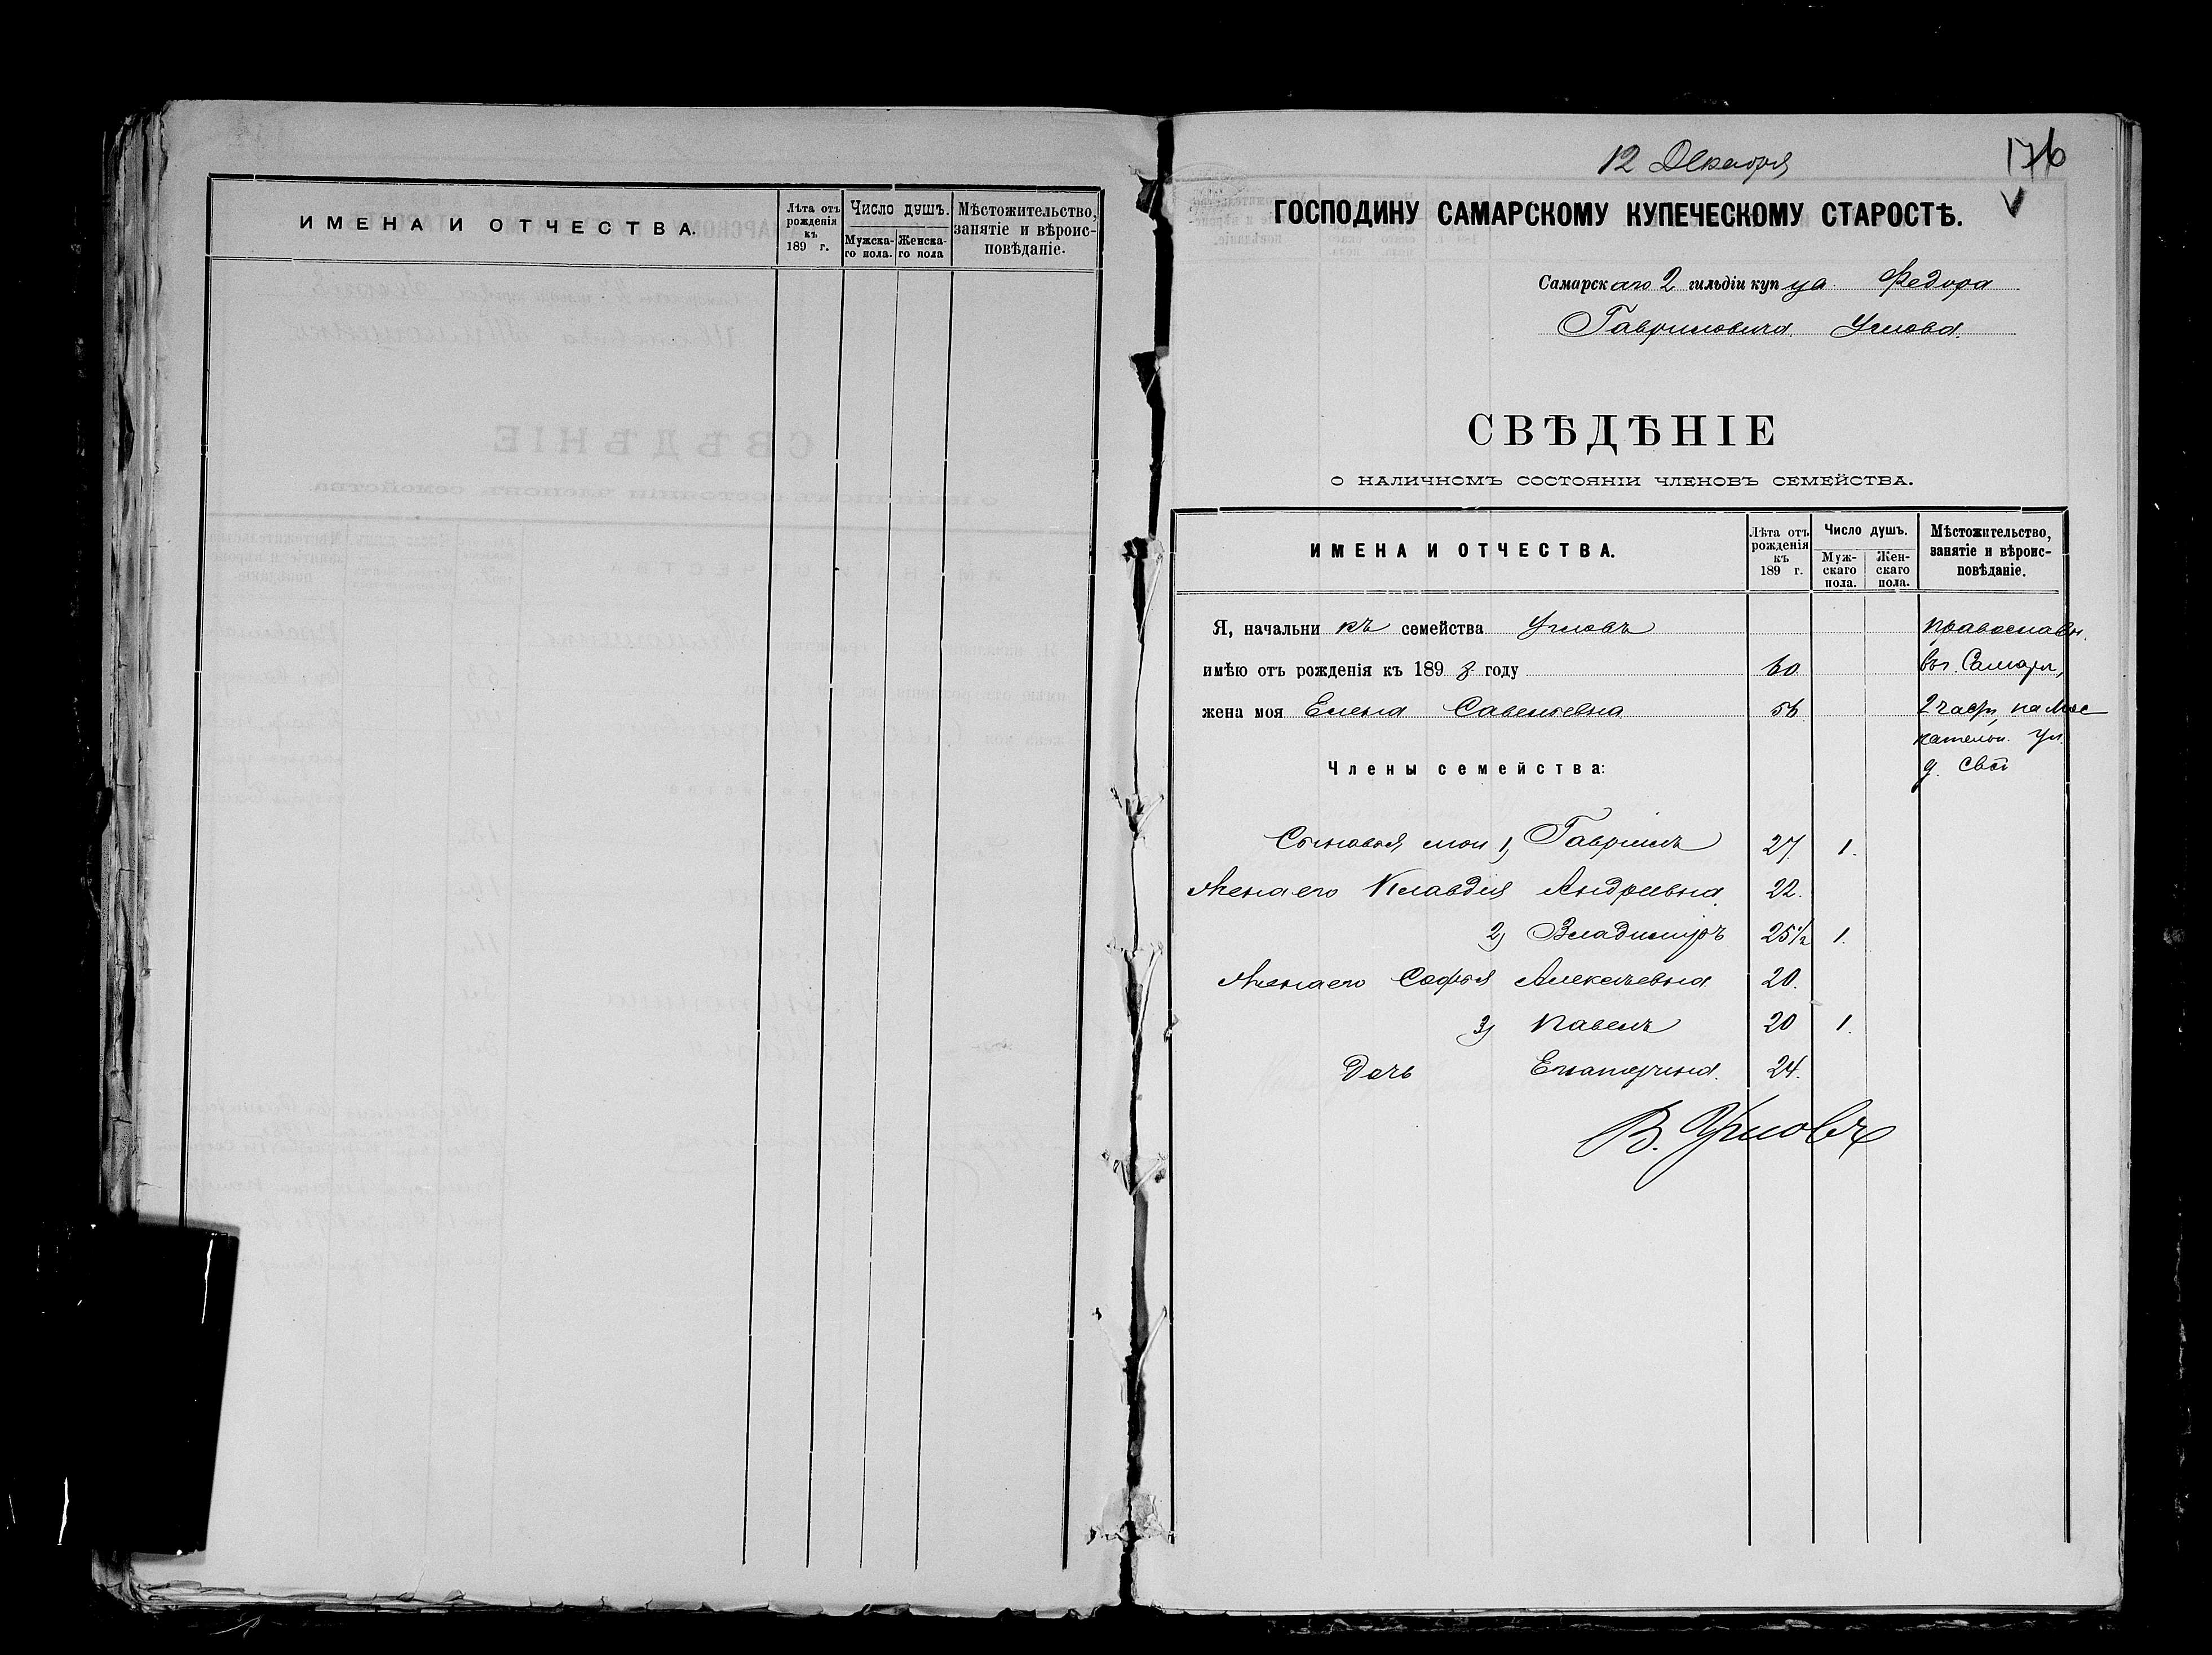 ИМЕНА И ОТЧЕСТВА.
Лѣта отъ рожденія къ 189 г.
Число душъ.
Мужска-го пола.
Женска-го пола
Мѣстожительство, занятіе и вѣроис-повѣданіе.
12 Декабря
176
ГОСПОДИНУ САМАРСКОМУ КУПЕЧЕСКОМУ СТАРОСТѢ.
Самарскаго 2 гильдіи купца Федора
Гавриловича Углова.
СВѢДѢНІЕ
О НАЛИЧНОМЪ СОСТОЯНІИ ЧЛЕНОВЪ СЕМЕЙСТВА.
ИМЕНА И ОТЧЕСТВА.
Лѣта отъ рожденія къ 189 г.
Число душъ.
Муж-скаго пола.
Жен-скаго пола.
Мѣстожительство, занятіе и вѣроис-повѣданіе.
Я, начальникъ семейства Угловъ православн.
имѣю отъ рожденія къ 1898 году 60 въ г. Самарѣ,
жена моя Елена Савельевна 56 2 части, на Мос
кательн. ул.
Члены семейства: д. свой
Сыновья мои 1) Гавріилъ 27. 1.
Жена его Клавдія Андреевна. 22.
2) Владиміръ 25½ 1.
Жена его Софья Алексѣевна 20.
3) Павелъ 20 1.
Дочь Екатерина. 24.
В. Угловъ